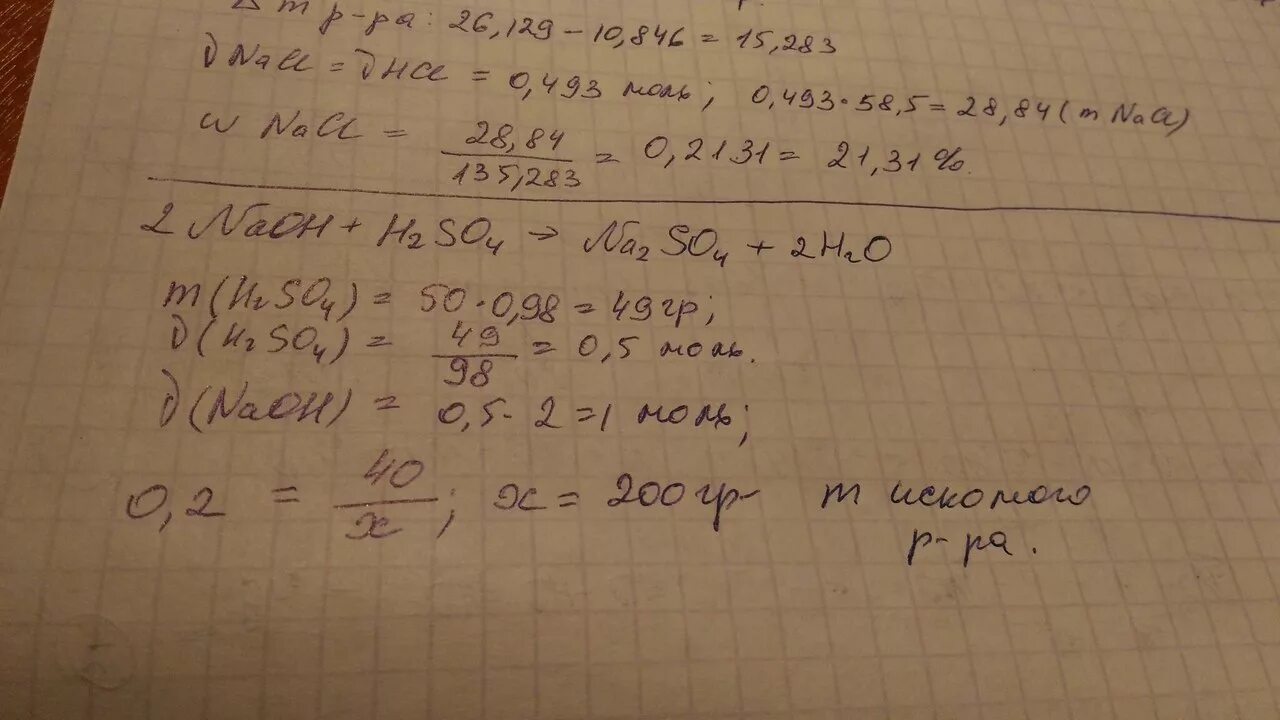 Δ m р-ра: 26,129 - 10,846 = 15,283
∂ NaCl = ∂ HCl = 0,493 моль; 0,493 · 58,5 = 28,84 (m NaCl)
w NaCl = 28,84 / 135,283 = 0,2131 = 21,31 %.
2 NaOH + H₂SO₄ → Na₂SO₄ + 2H₂O
m (H₂SO₄) = 50 · 0,98 = 49 гр;
∂ (H₂SO₄) = 49 / 98 = 0,5 моль.
∂ (NaOH) = 0,5 · 2 = 1 моль;
0,2 = 40 / x ; x = 200 гр - m искомого
р-ра.